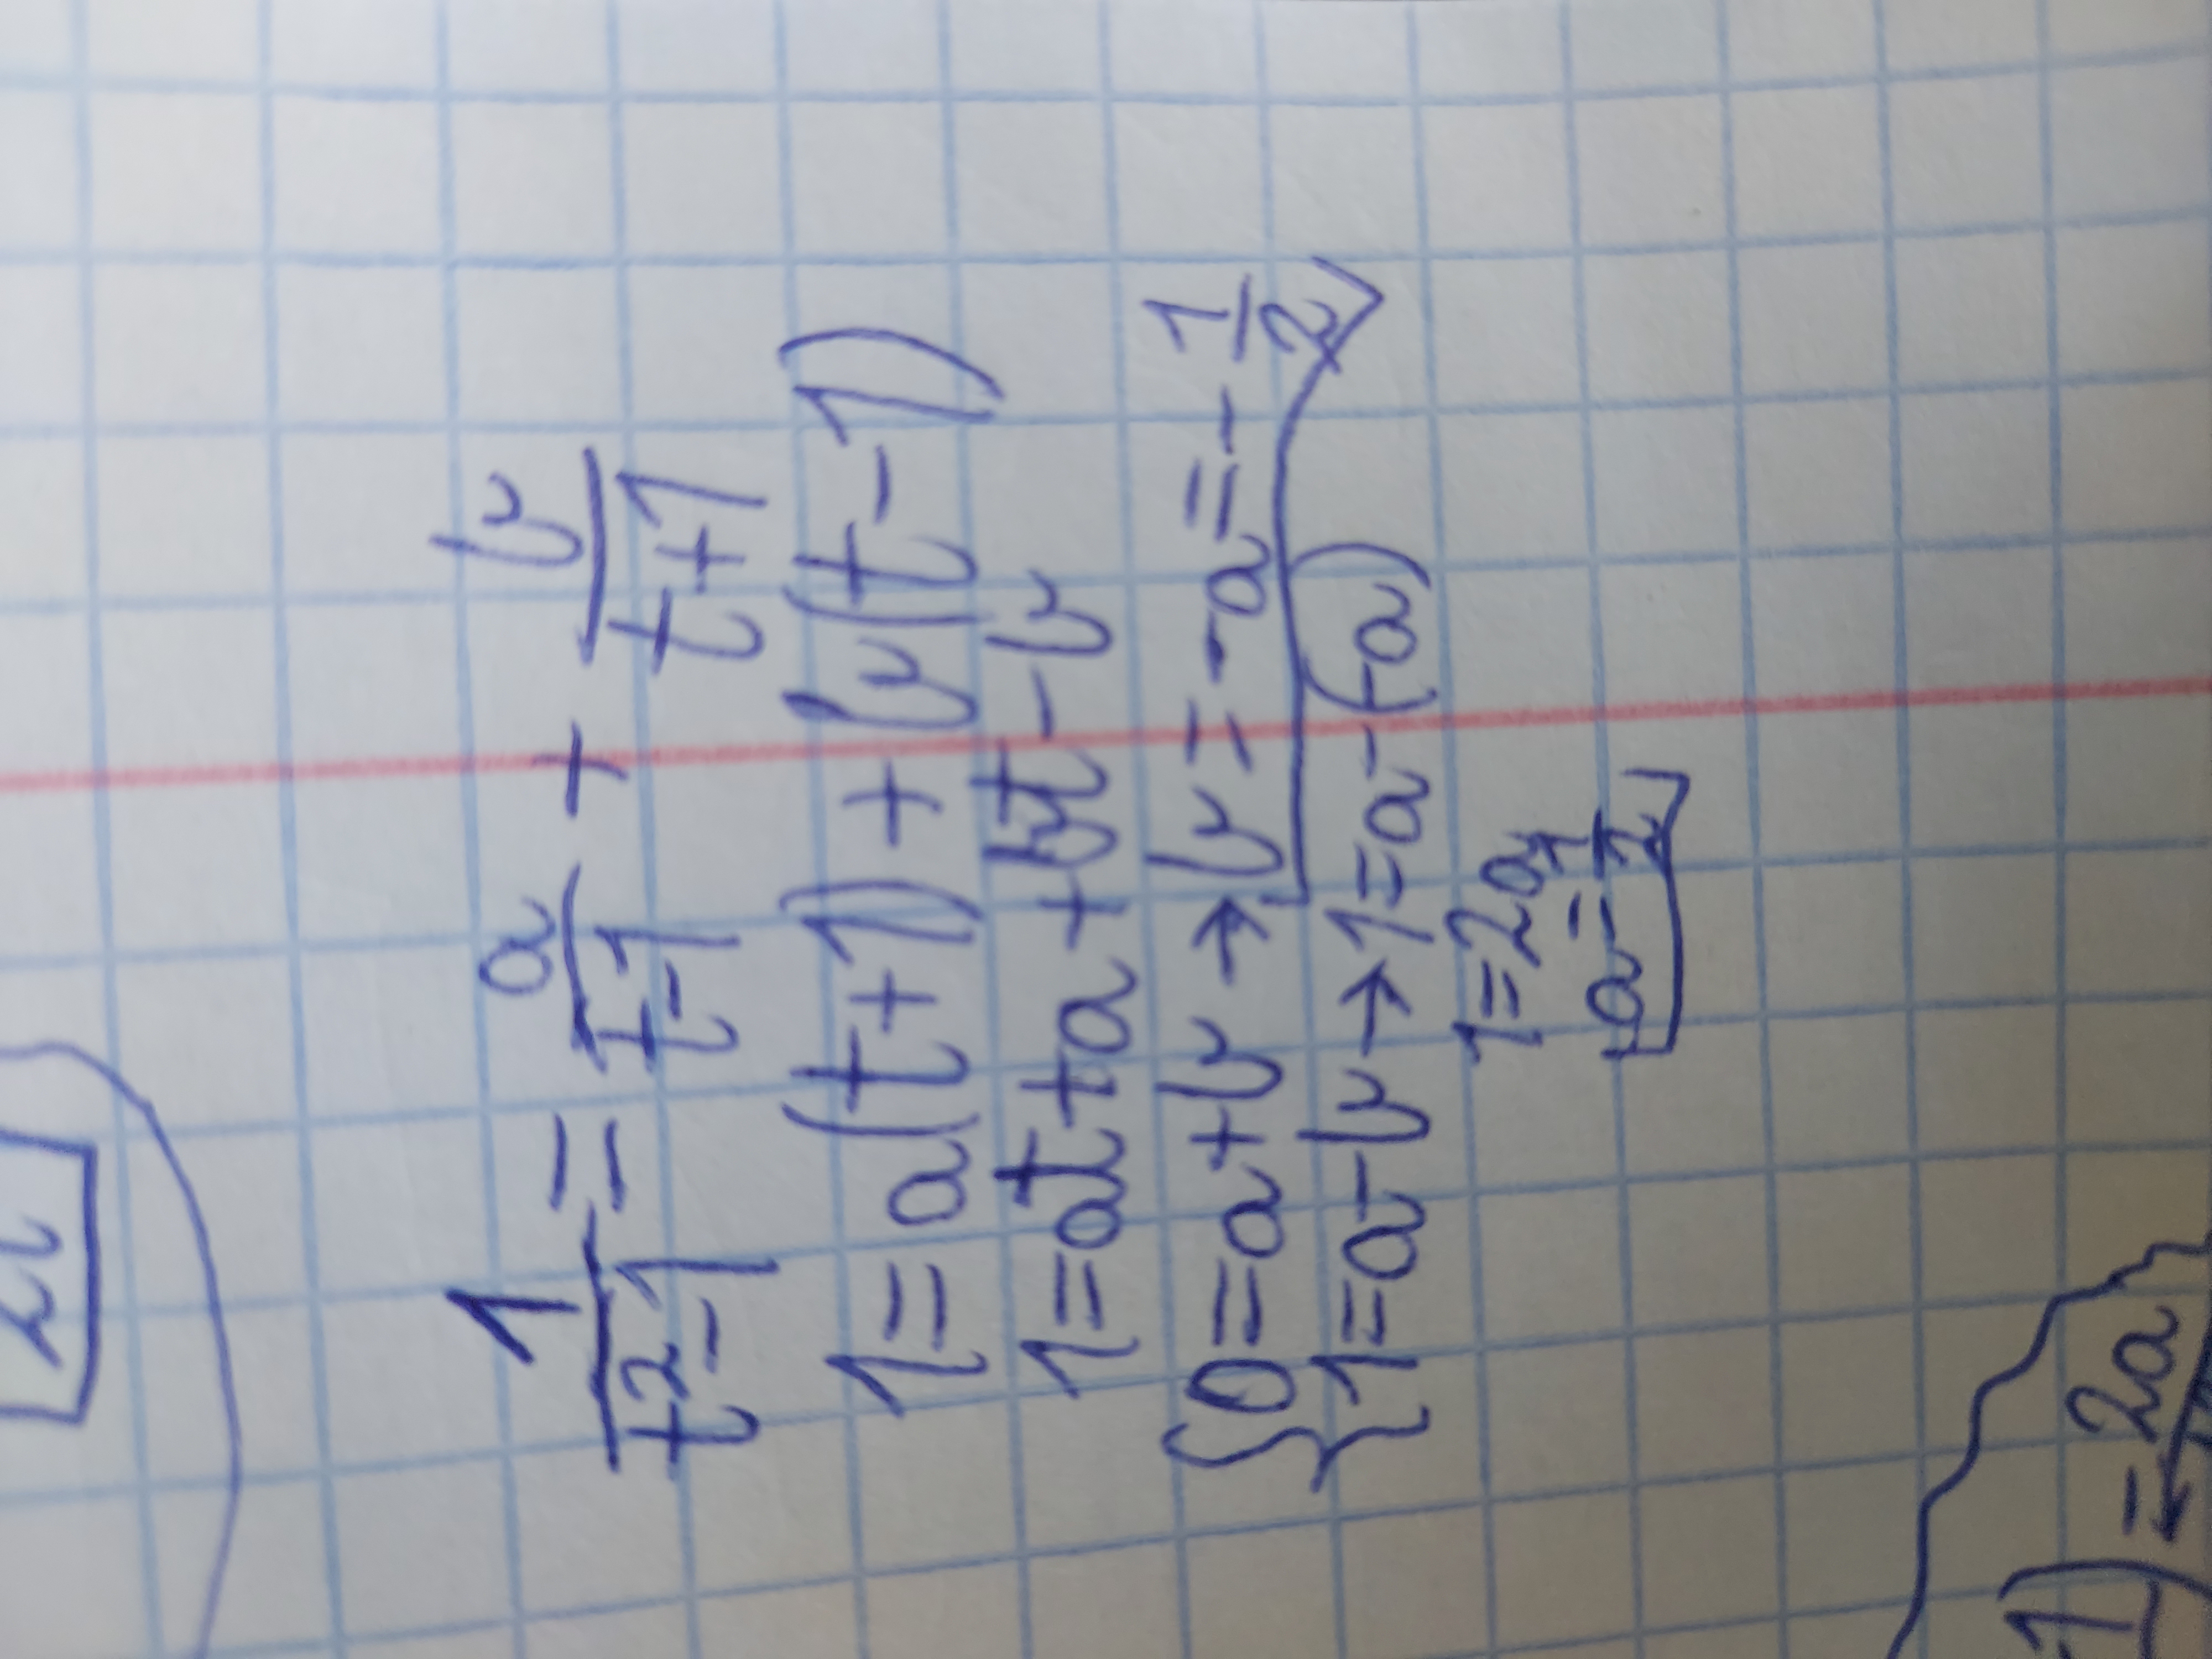 1/(t²-1) = a/(t-1) + b/(t+1)
1=a(t+1)+b(t-1)
1=at+a+bt-b
{0=a+b → b=-a=-1/2
{1=a-b → 1=a-(-a)
1=2a
a=1/2
1)=2a